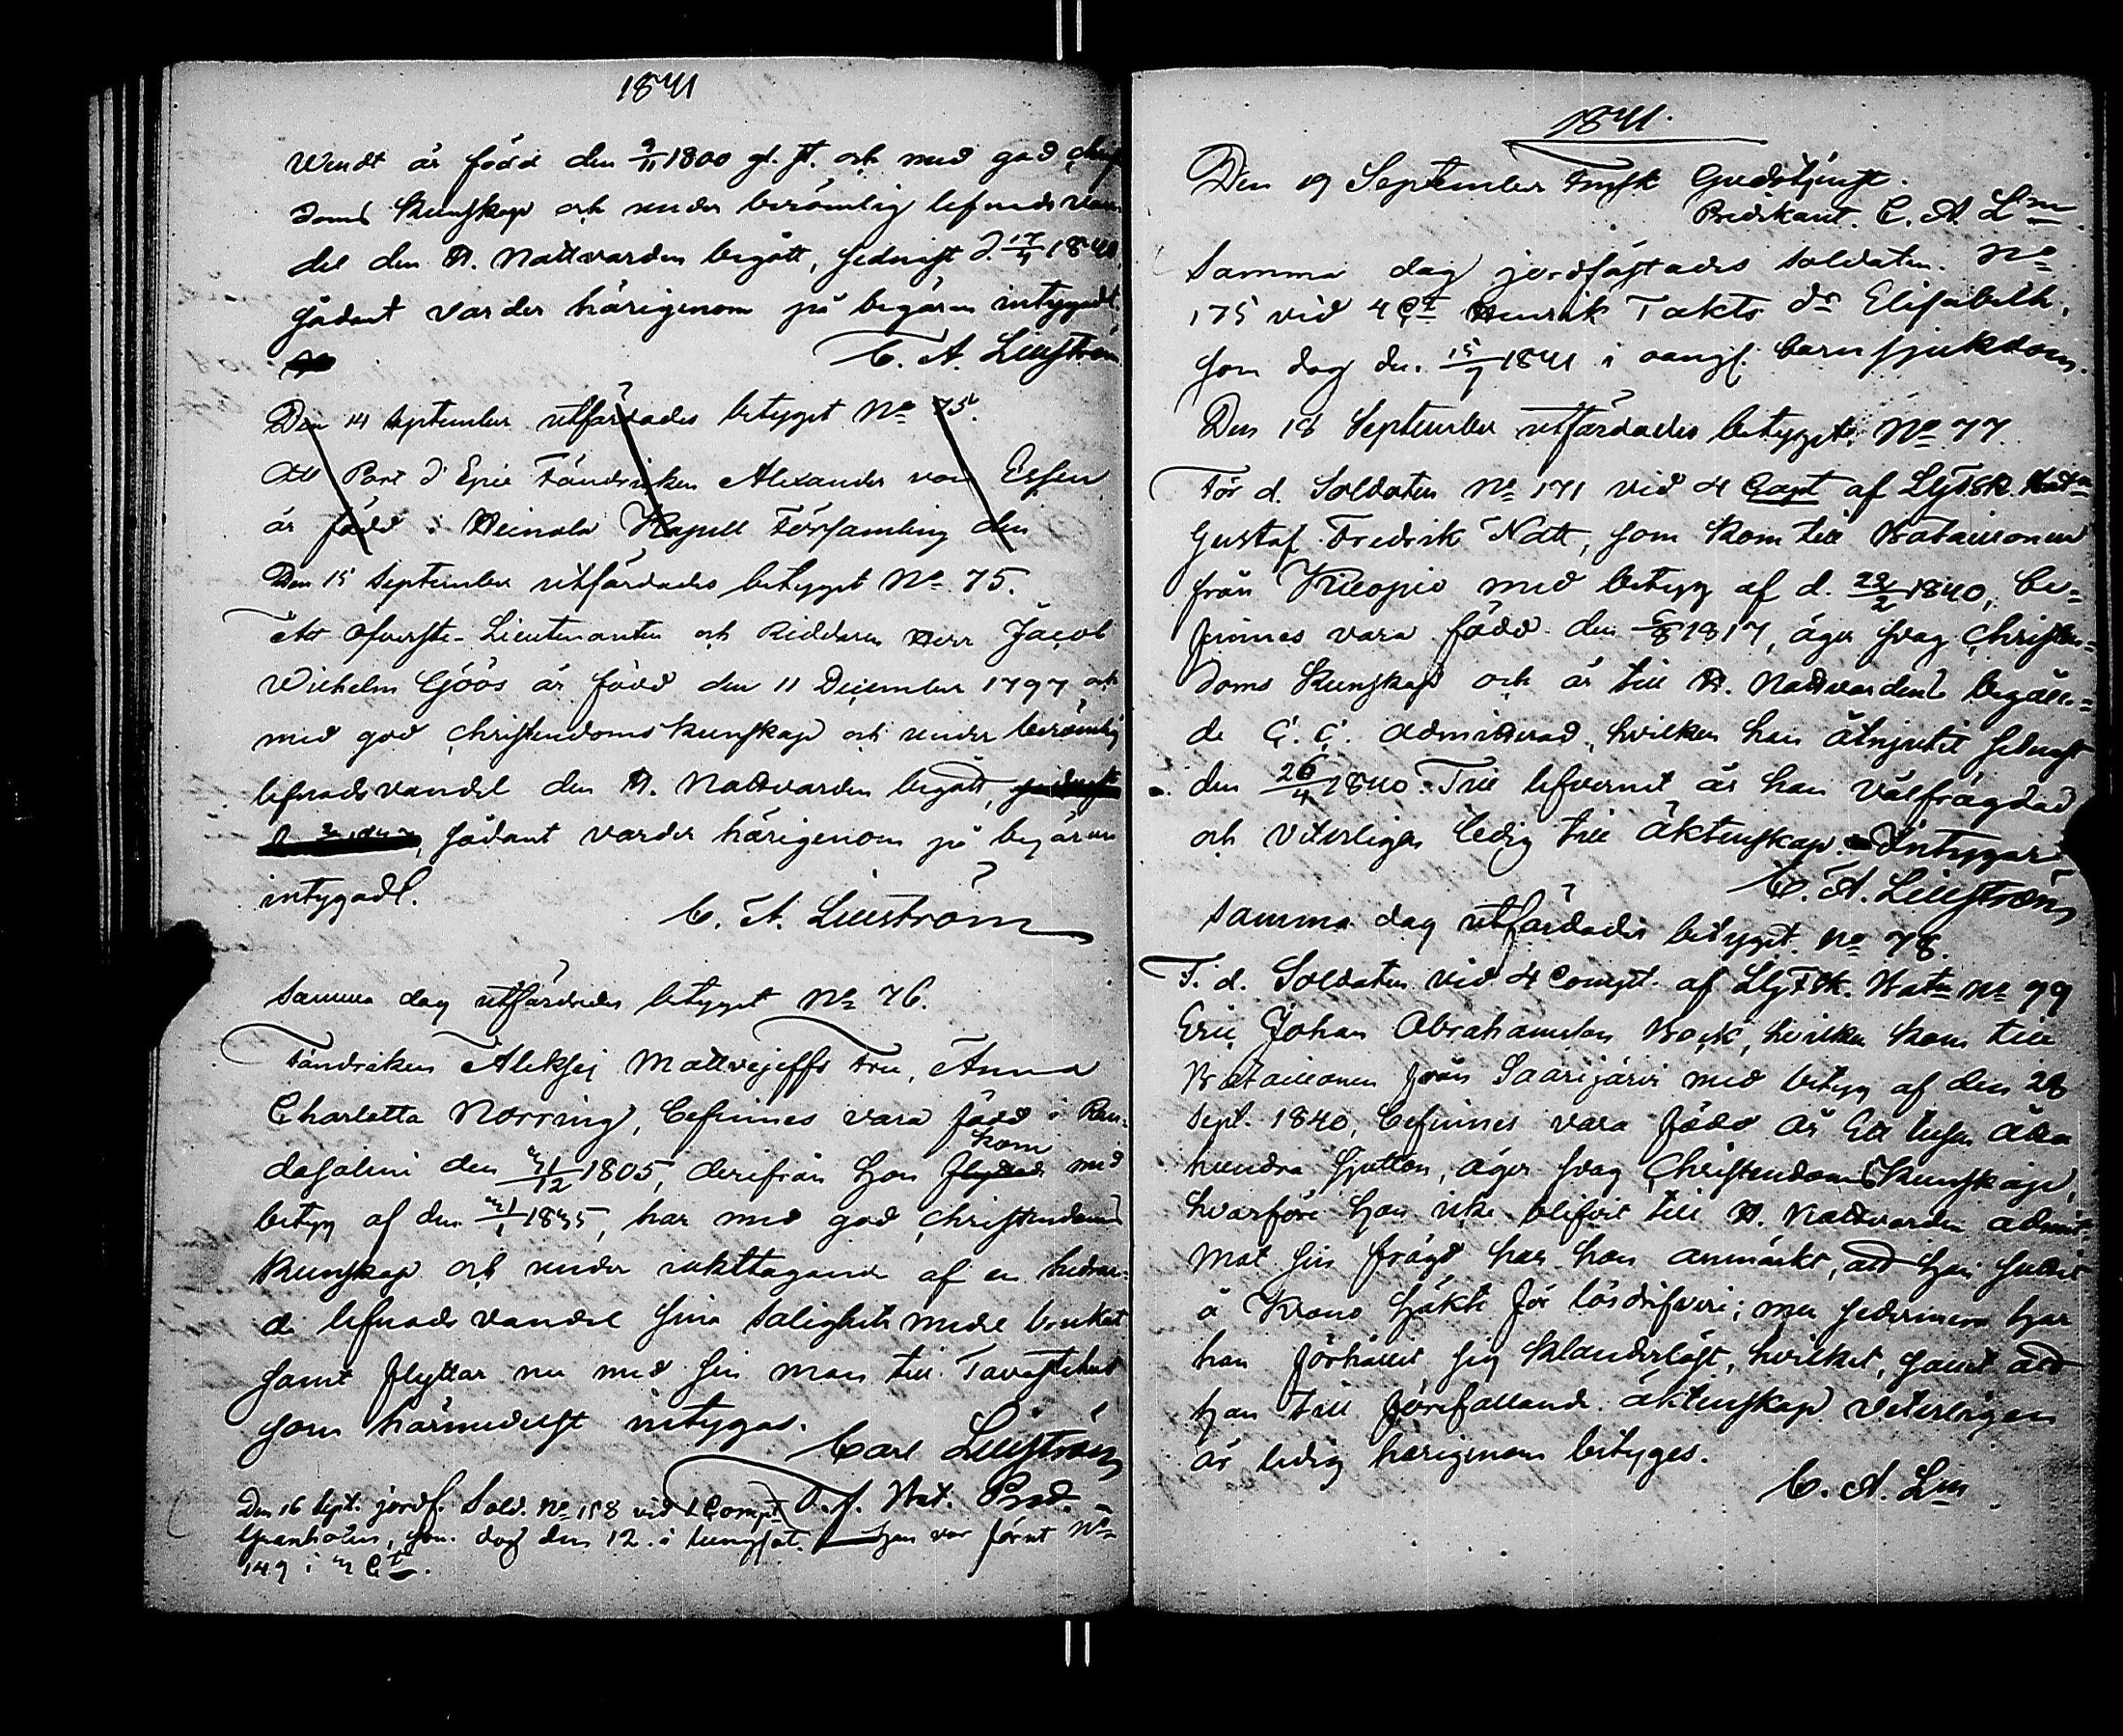 1841
Wendt är född den 9/11 1800 gl. st. och med god chris
doms kunskap och under berömlig lefnadsvan
del den H. Nattvarden begått, sednast d. 17/4 1840,
sådant varder härigenom på begäran intygadt.
C. A. Lillström
Den 14 September utfärdades betyget No 75.
Att Port d'Epée Fändriken Alexander von Essen
är född i Heinola Kapell Församling den
Den 15 September utfärdades betyget No 75.
Att Öfverste-Lieutenanten och Riddaren Herr Jacob
Wilhelm Göös är född den 11 December 1797 och
med god christendomskunskap och under berömlig
lefnadsvandel den H. Nattvarden begått, sednast
sådant varder härigenom på begäran
intygadt.
C. A. Lillström
Samma dag utfärdades betyget No 76.
Fändriken Aleksej Mattvejeffs Fru, Anna
Charlotta Norring, befinnes vara född i Ran-
dasalmi den 21/12 1805, derifrån hon flyttade kom med
betyg af den 21/1 1835, har med god christendoms
kunskap och under iakttagande af en hedran-
de lefnadsvandel sina salighetsmedel brukat
samt flyttar nu med sin man till Tavastehus
som härmedelst intygas.
Carl Lillström
V. f. Bat. Pred.
Den 16 Sept. jordf. Sold. No 158 vid 1 Compt
Granholm, som dog den 12 i lungsot. Han var förut No
149 i 2 Ct.
1841.
Den 19 September Finsk Gudstjenst.
Predikant. C. A. Lm
Samma dag jordfästades soldaten No
175 vid 4 Ct Henrik Takts dr Elisabeth,
som dog den 15/9 1841 i oangf. barnsjukdom.
Den 18 September utfärdades betyget No 77.
För d. Soldaten No 171 vid 4 Capt af LgFsk. Batn
Gustaf Fredrik Natt, som kom till Bataillonen
från Kuopio med betyg af d. 22/2 1840, be-
finnes vara född den 6/8 1817, äger svag christen-
doms kunskap och är till H. Nattvardens begåen-
de C. C. admitterad, hvilken han åtnjutit sednast
den 26/4 1840. Till lefvernet är han välfrägdad
och viterligen ledig till äktenskap. Intygar
C. A. Lillström
Samma dag utfärdades betyget No 78.
F. d. Soldaten vid 4 Compt. af LgFsk. Batn No 99
Eric Johan Abrahamsson Bock, hvilken kom till
Bataillonen från Saarijärvi med betyg af den 28
Sept. 1840, befinnes vara född år Ett tusen åtta
hundra sjutton, äger svag Christendoms kunskap,
hvarföre han icke blifvit till H. Nattvarden admitt.
Mot sin frägd har han anmärkt, att han suttit
å Krono häkte för lösdrifveri; men sedermera har
han förhållit sig klanderlöst, hvilket, samt att
han till förefallande äktenskap viterligen
är ledig härigenom betyges.
C. A. Lm